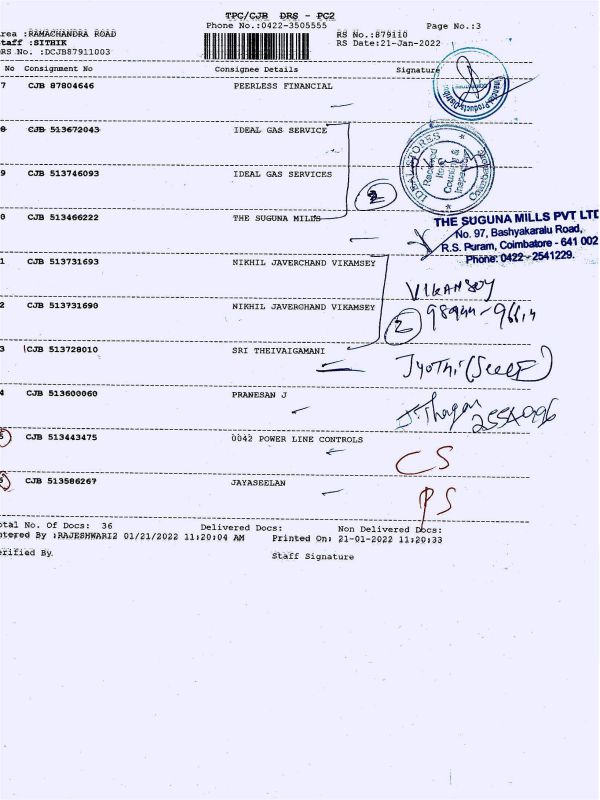 TPC/CJB DRS - PC2
Phone No.:0422-3505555 Page No.:3
rea :RAMACHANDRA ROAD RS No.:879110
taff :SITHIK RS Date:21-Jan-2022
RS No. :DCJB87911003
No Consignment No Consignee Details Signature
7 CJB 87804646 PEERLESS FINANCIAL
8 CJB 513672043 IDEAL GAS SERVICE
IDEAL STORES
Received
Coimbatore
9 CJB 513746093 IDEAL GAS SERVICES
2
0 CJB 513466222 THE SUGUNA MILLS
THE SUGUNA MILLS PVT LTD
No. 97, Bashyakaralu Road,
R.S. Puram, Coimbatore - 641 002
Phone: 0422 - 2541229.
1 CJB 513731693 NIKHIL JAVERCHAND VIKAMSEY
VIKAMSEY
2 CJB 513731690 NIKHIL JAVERCHAND VIKAMSEY
2
3 CJB 513728010 SRI THEIVAIGAMANI
Jyothi
4 CJB 513600060 PRANESAN J
2554996
5 CJB 513443475 0042 POWER LINE CONTROLS
CS
6 CJB 513586267 JAYASEELAN
PS
otal No. Of Docs: 36 Delivered Docs: Non Delivered Docs:
ntered By :RAJESHWARI2 01/21/2022 11:20:04 AM Printed On: 21-01-2022 11:20:33
erified By Staff Signature